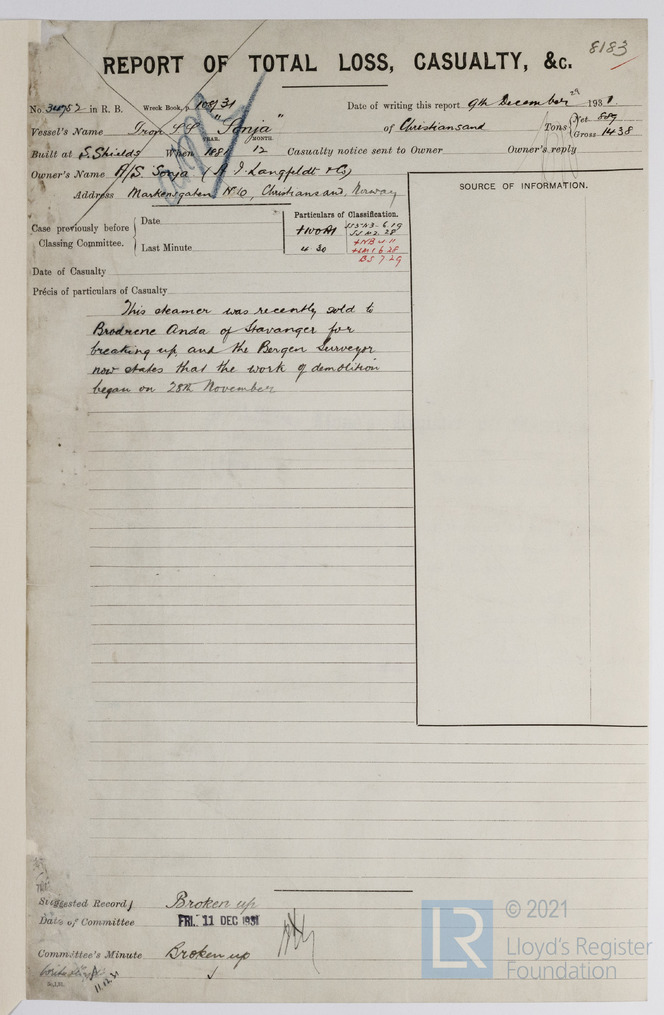 8183
REPORT OF TOTAL LOSS, CASUALTY, &c.
No. 34752 in R. B. Wreck Book, p. 108/31 Date of writing this report 9th December 1931.
Vessel's Name Iron SS "Sonja" of Christiansand Tons { Net 889 Gross 1438
YEAR. MONTH.
Built at S. Shields When 1881 12 Casualty notice sent to Owner Owner's reply
Owner's Name A/S Sonja (A. I. Langfeldt & Co)
Address Markensgaten No 10, Christiansand, Norway
SOURCE OF INFORMATION.
Case previously before Classing Committee. { Date
Last Minute
Particulars of Classification.
4 30
BS 7.29
Date of Casualty
Précis of particulars of Casualty
This steamer was recently sold to
Brödrene Anda of Stavanger for
breaking up, and the Bergen Surveyor
now states that the work of demolition
began on 28th November
Suggested Record Broken up
Date of Committee FRI. 11 DEC 1931
Committee's Minute Broken up
© 2021
LR
Lloyd's Register
Foundation